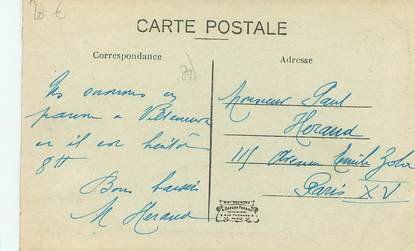 20 €
CARTE POSTALE
Correspondance
Adresse
Nous sommes en
panne à
et il est bientôt
8H
Bons baisers
M Heraud
Monsieur Paul
Heraud
115 Avenue Emile Zola
Paris XV